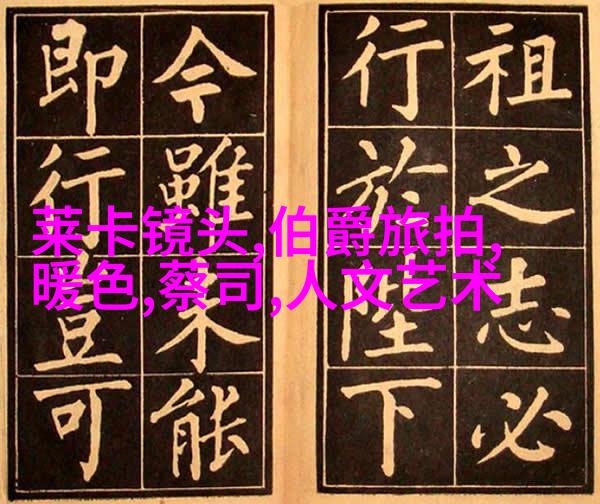 祖之志必
行於陛下
今雖未能
即行豈可
莱卡镜头,伯爵旅拍,
暖色,蔡司,人文艺术